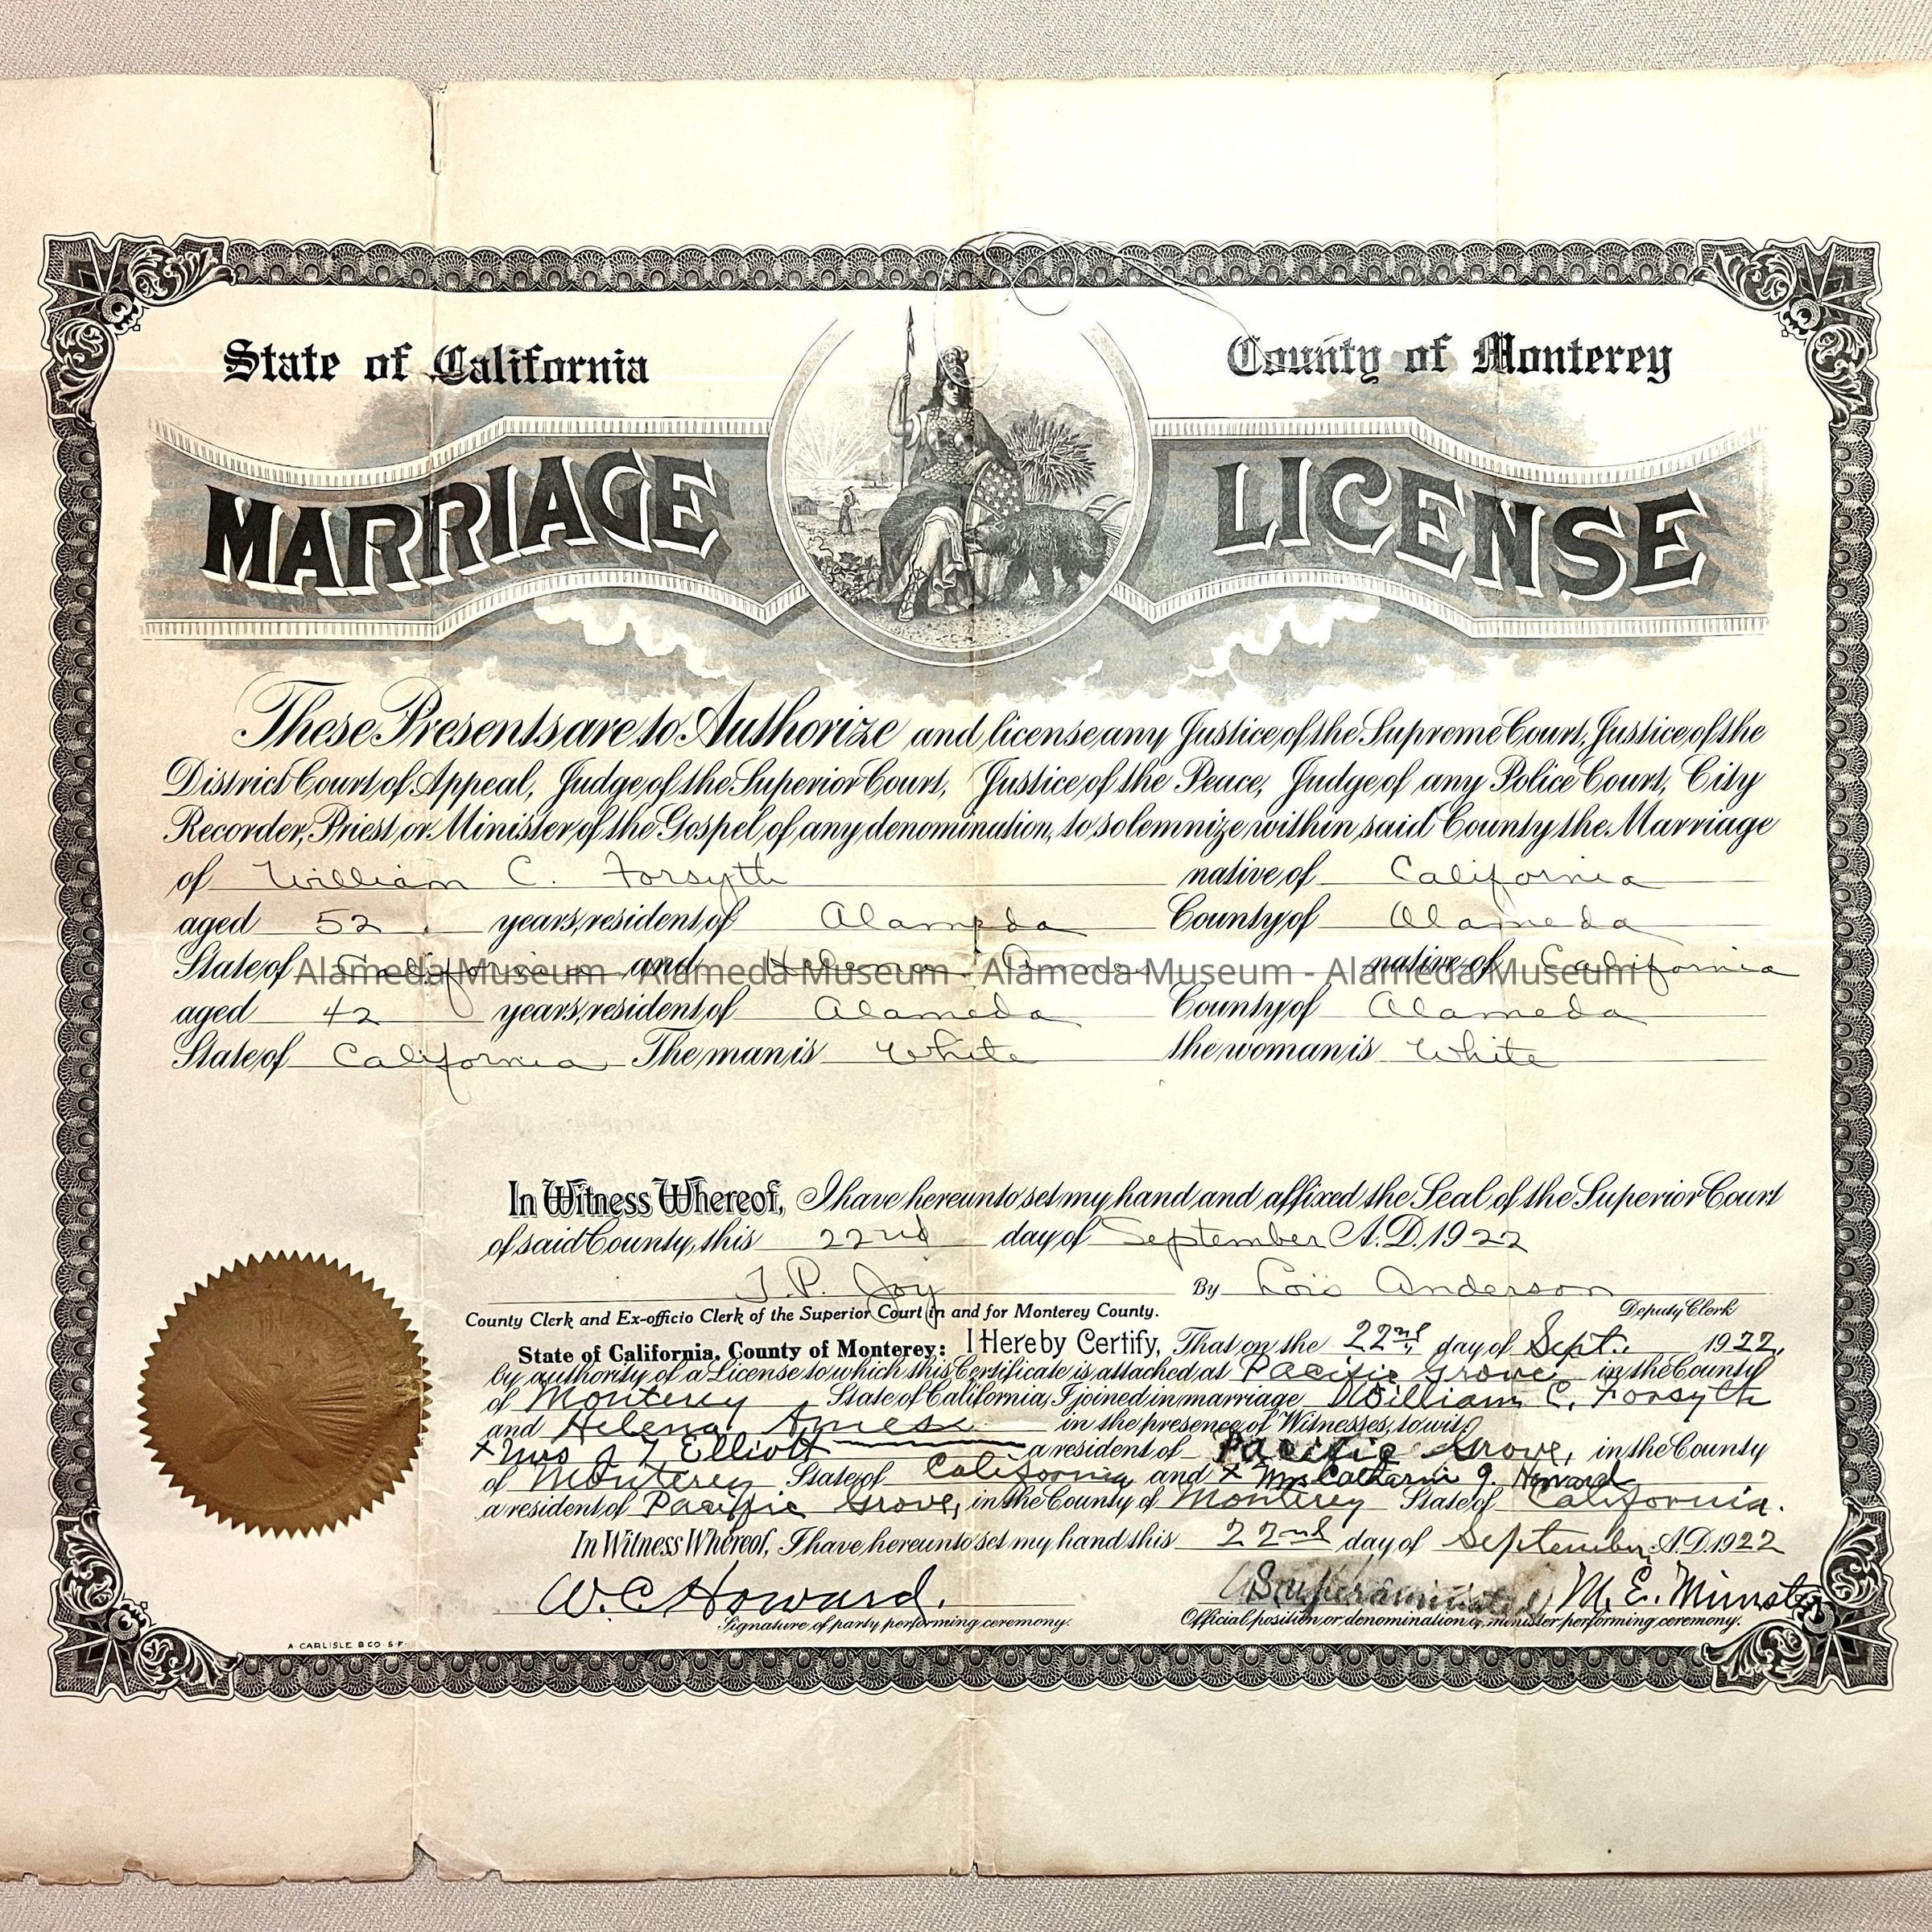 State of California County of Monterey
MARRIAGE LICENSE
These Presents are to Authorize and license any Justice of the Supreme Court, Justice of the
District Court of Appeal, Judge of the Superior Court, Justice of the Peace, Judge of any Police Court, City
Recorder, Priest or Minister of the Gospel of any denomination, to solemnize within said County the Marriage
of William C. Forsyth native of California
aged 52 years, resident of Alameda County of Alameda
State of California and Helena native of California
Alameda Museum - Alameda Museum - Alameda Museum - Alameda Museum
aged 42 years, resident of Alameda County of Alameda
State of California The man is White the woman is White
In Witness Whereof, I have hereunto set my hand and affixed the Seal of the Superior Court
of said County, this 22nd day of September A.D. 1922
T.P. Joy By Lois Anderson
County Clerk and Ex-officio Clerk of the Superior Court in and for Monterey County. Deputy Clerk
State of California, County of Monterey: I Hereby Certify, That on the 22nd day of Sept. 1922,
by authority of a License to which this Certificate is attached at Pacific Grove, in the County
of Monterey State of California, I joined in marriage William C. Forsyth
and Helena in the presence of Witnesses, to wit:
x Mrs J. L. Elliott a resident of Pacific Grove, in the County
of Monterey State of California and x Mrs Catharin J. Howard
a resident of Pacific Grove, in the County of Monterey State of California.
In Witness Whereof, I have hereunto set my hand this 22nd day of September A.D. 1922
W. C. Howard. M. E. Minister
Signature of party performing ceremony. Official position or denomination of minister performing ceremony.
A. CARLISLE & CO. S.F.